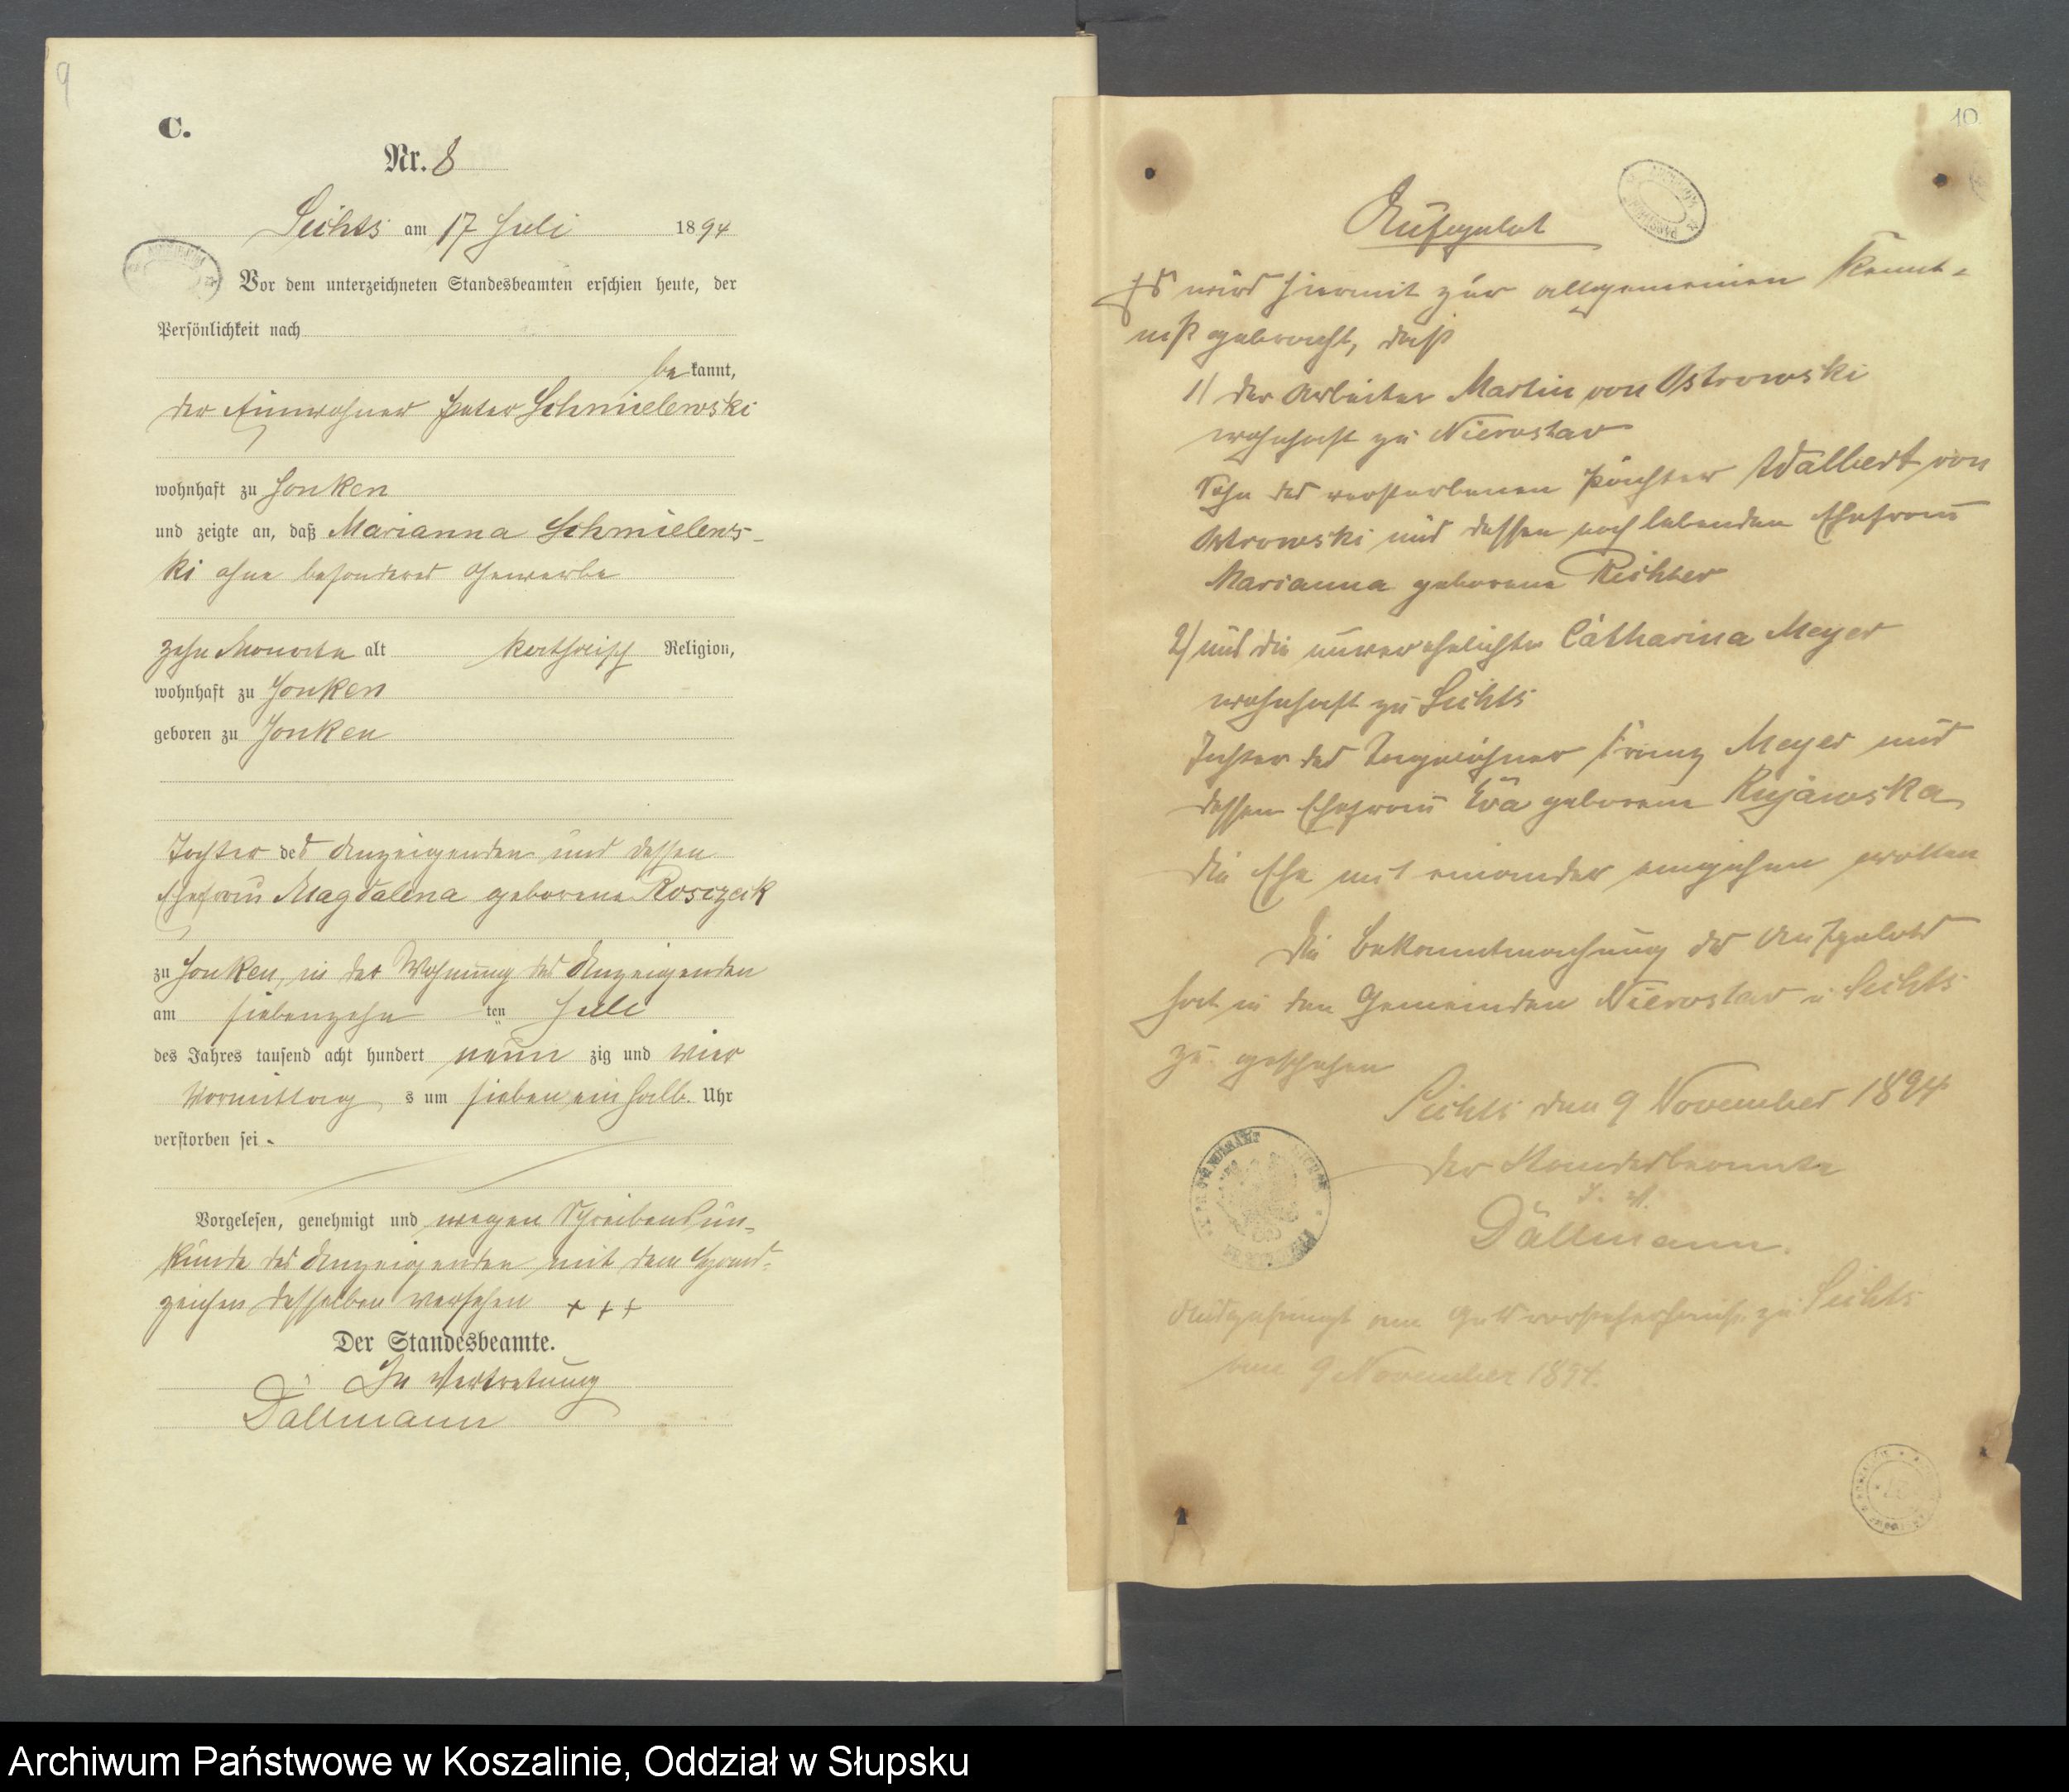 9
C.
Nr. 8
Lichts am 17 Juli 1894
Vor dem unterzeichneten Standesbeamten erschien heute, der
Persönlichkeit nach
be kannt,
der Einwohner Peter Schmielewski
wohnhaft zu Jonken
und zeigte an, daß Marianna Schmielews-
ki ohne besonderes Gewerbe
zehn Monate alt katholisch Religion,
wohnhaft zu Jonken
geboren zu Jonken
Tochter des Anzeigenden und dessen
Ehefrau Magdalena geborene
zu Jonken, in der Wohnung des Anzeigenden
am siebenzehn ten Juli
des Jahres tausend acht hundert neun zig und vier
Vormittag s um sieben ein halb Uhr
verstorben sei
Vorgelesen, genehmigt und wegen Schreibensun-
kunde des Anzeigenden mit dem Hand-
zeichen desselben versehen + + +
Der Standesbeamte.
In Vertretung
Dällmann
10
Aufgebot
Es wird hiermit zur allgemeinen Kennt-
niß gebracht, daß
1) der Arbeiter Martin von Ostrowski
wohnhaft zu Nierostaw
Sohn des verstorbenen Pächter Walbert von
Ostrowski und dessen noch lebenden Ehefrau
Marianna geborene Richter
2) und die unverehelichte Catharina Meyer
wohnhaft zu Lichts
Tochter des Franz Meyer und
dessen Ehefrau Eva geborene Kujawska
die Ehe mit einander eingehen wollen
Die Bekanntmachung des Aufgebots
hat in den Gemeinden Nierostaw u Lichts
zu geschehen
Lichts den 9 November 1894
Der Standesbeamte
I. V.
Dällmann.
Ausgehängt am zu Lichts
den 9 November 1894.
Archiwum Państwowe w Koszalinie, Oddział w Słupsku